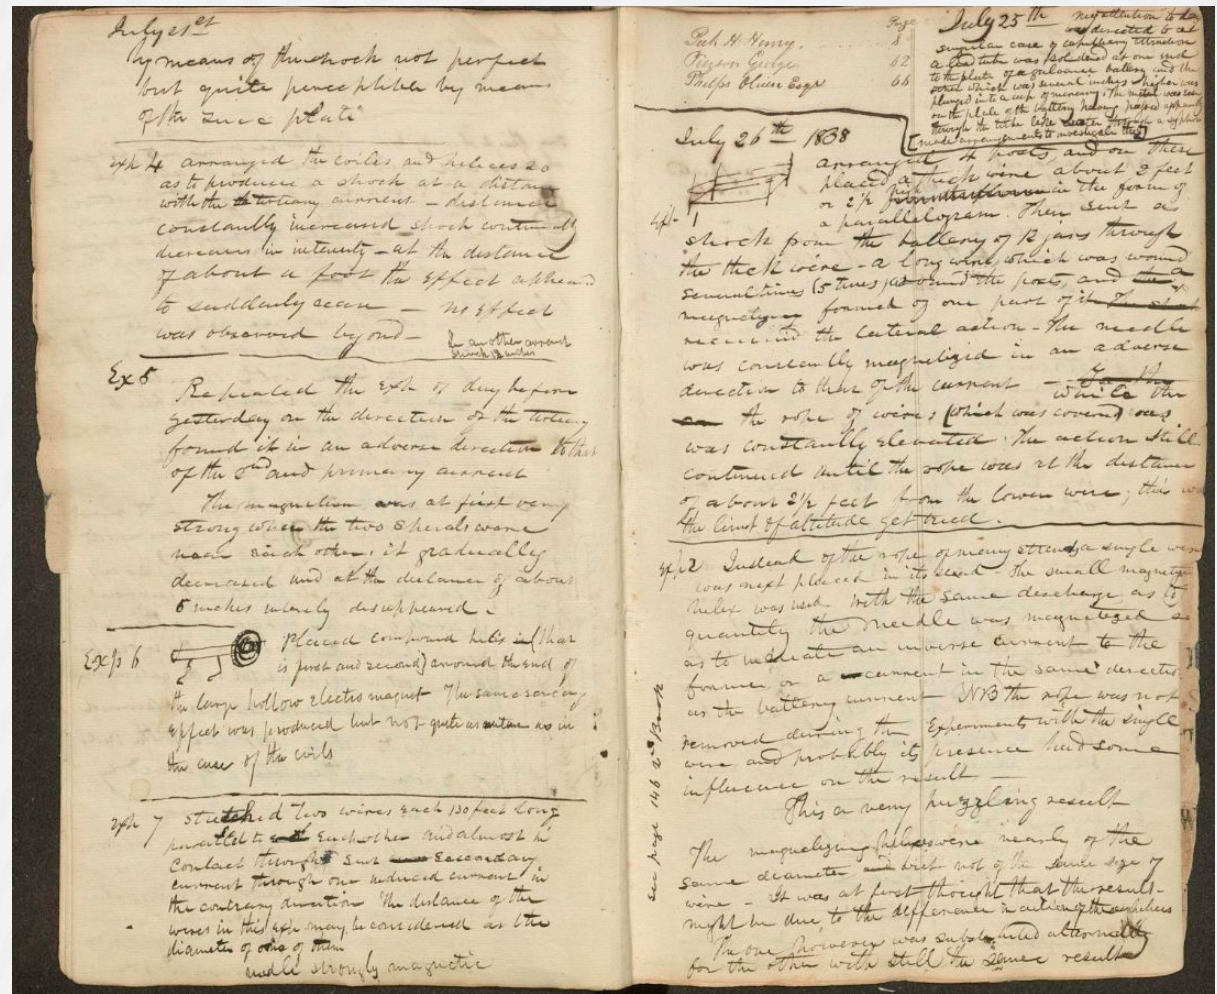 July 21st
by means of the shock not perfect
but quite perceptible by means
of the zinc plate
Exp 4 arranged the coiles and helices so
as to produce a shock at a distance
with the tertiary current – distance
constantly increased shock continually
decreases in intensity – at the distance
of about a foot the effect appeared
to suddenly cease – no effect
was observed beyond –
In another arrangt
shock 12 inches
Ex 5
Repeated the exp of day before
yesterday on the direction of the tertiary
found it in an adverse direction to that
of the 2nd and primary current
The magnetism was at first very
strong when the two spirals were
near each other; it gradually
decreased and at the distance of about
6 inches entirely disappeared –
Exp 6 Placed compound helix (that
is first and second) around the end of
the large hollow electro magnet The same
effect was produced but not quite as intense as in
the case of the coils
Exp 7 stretched two wires each 130 feet long
parallel to each other and almost in
contact through sent secondary
current through one induced current in
the contrary direction The distance of the
wires in this exp may be considered as the
diameter of one of them
needle strongly magnetic
Page
Peck. H. Henry. 8
Pierson George 62
Phelps Oliver Esqr 66
July 25th my attention to day
was directed to a
singular case of capillary attraction
a lead tube was soldered at one end
to the plate of a galvanic battery and the
other which was several inches higher was
plunged into a cup of mercury. The metal was
on the plate of the battery having passed apparently
through the tube like water through a syphon
[made arrangements to investigate this]
July 26th 1838
arranged 4 posts, and on these
placed a thick wire about 2 feet
or 2 1/2 in the form of
Exp 1 a parallelogram. Then sent a
shock from the battery of 12 jars through
the thick wire – a long wire, which was wound
several times (5 times) around the posts, and a
formed of one part of it
received the lateral action – The needle
was constantly magnetized in an adverse
direction to that of the current – while the
the rope of wires (which was covered) was
was constantly elevated. The action still
continued until the rope was at the distance
of about 2 1/2 feet from the lower wire; this was
the limit of altitude yet tried.
Exp 2 Instead of the rope of many strands a single wire
was next placed in its stead – The small magnetizing
helix was used. With the same discharge as to
quantity the needle was magnetized so
as to indicate an inverse current to the
former or a current in the same direction
as the battery current NB the rope was not
removed during the Experiments with the single
wire and probably its presence had some
influence on the result –
This a very puzzling result
The magnetizing helixes were nearly of the
same diameter but not of the same size of
wire – It was at first thought that the result
might be due to the difference in action of these helices
The one however was substituted alternately
for the other with still the same result
see page 146 2nd Book